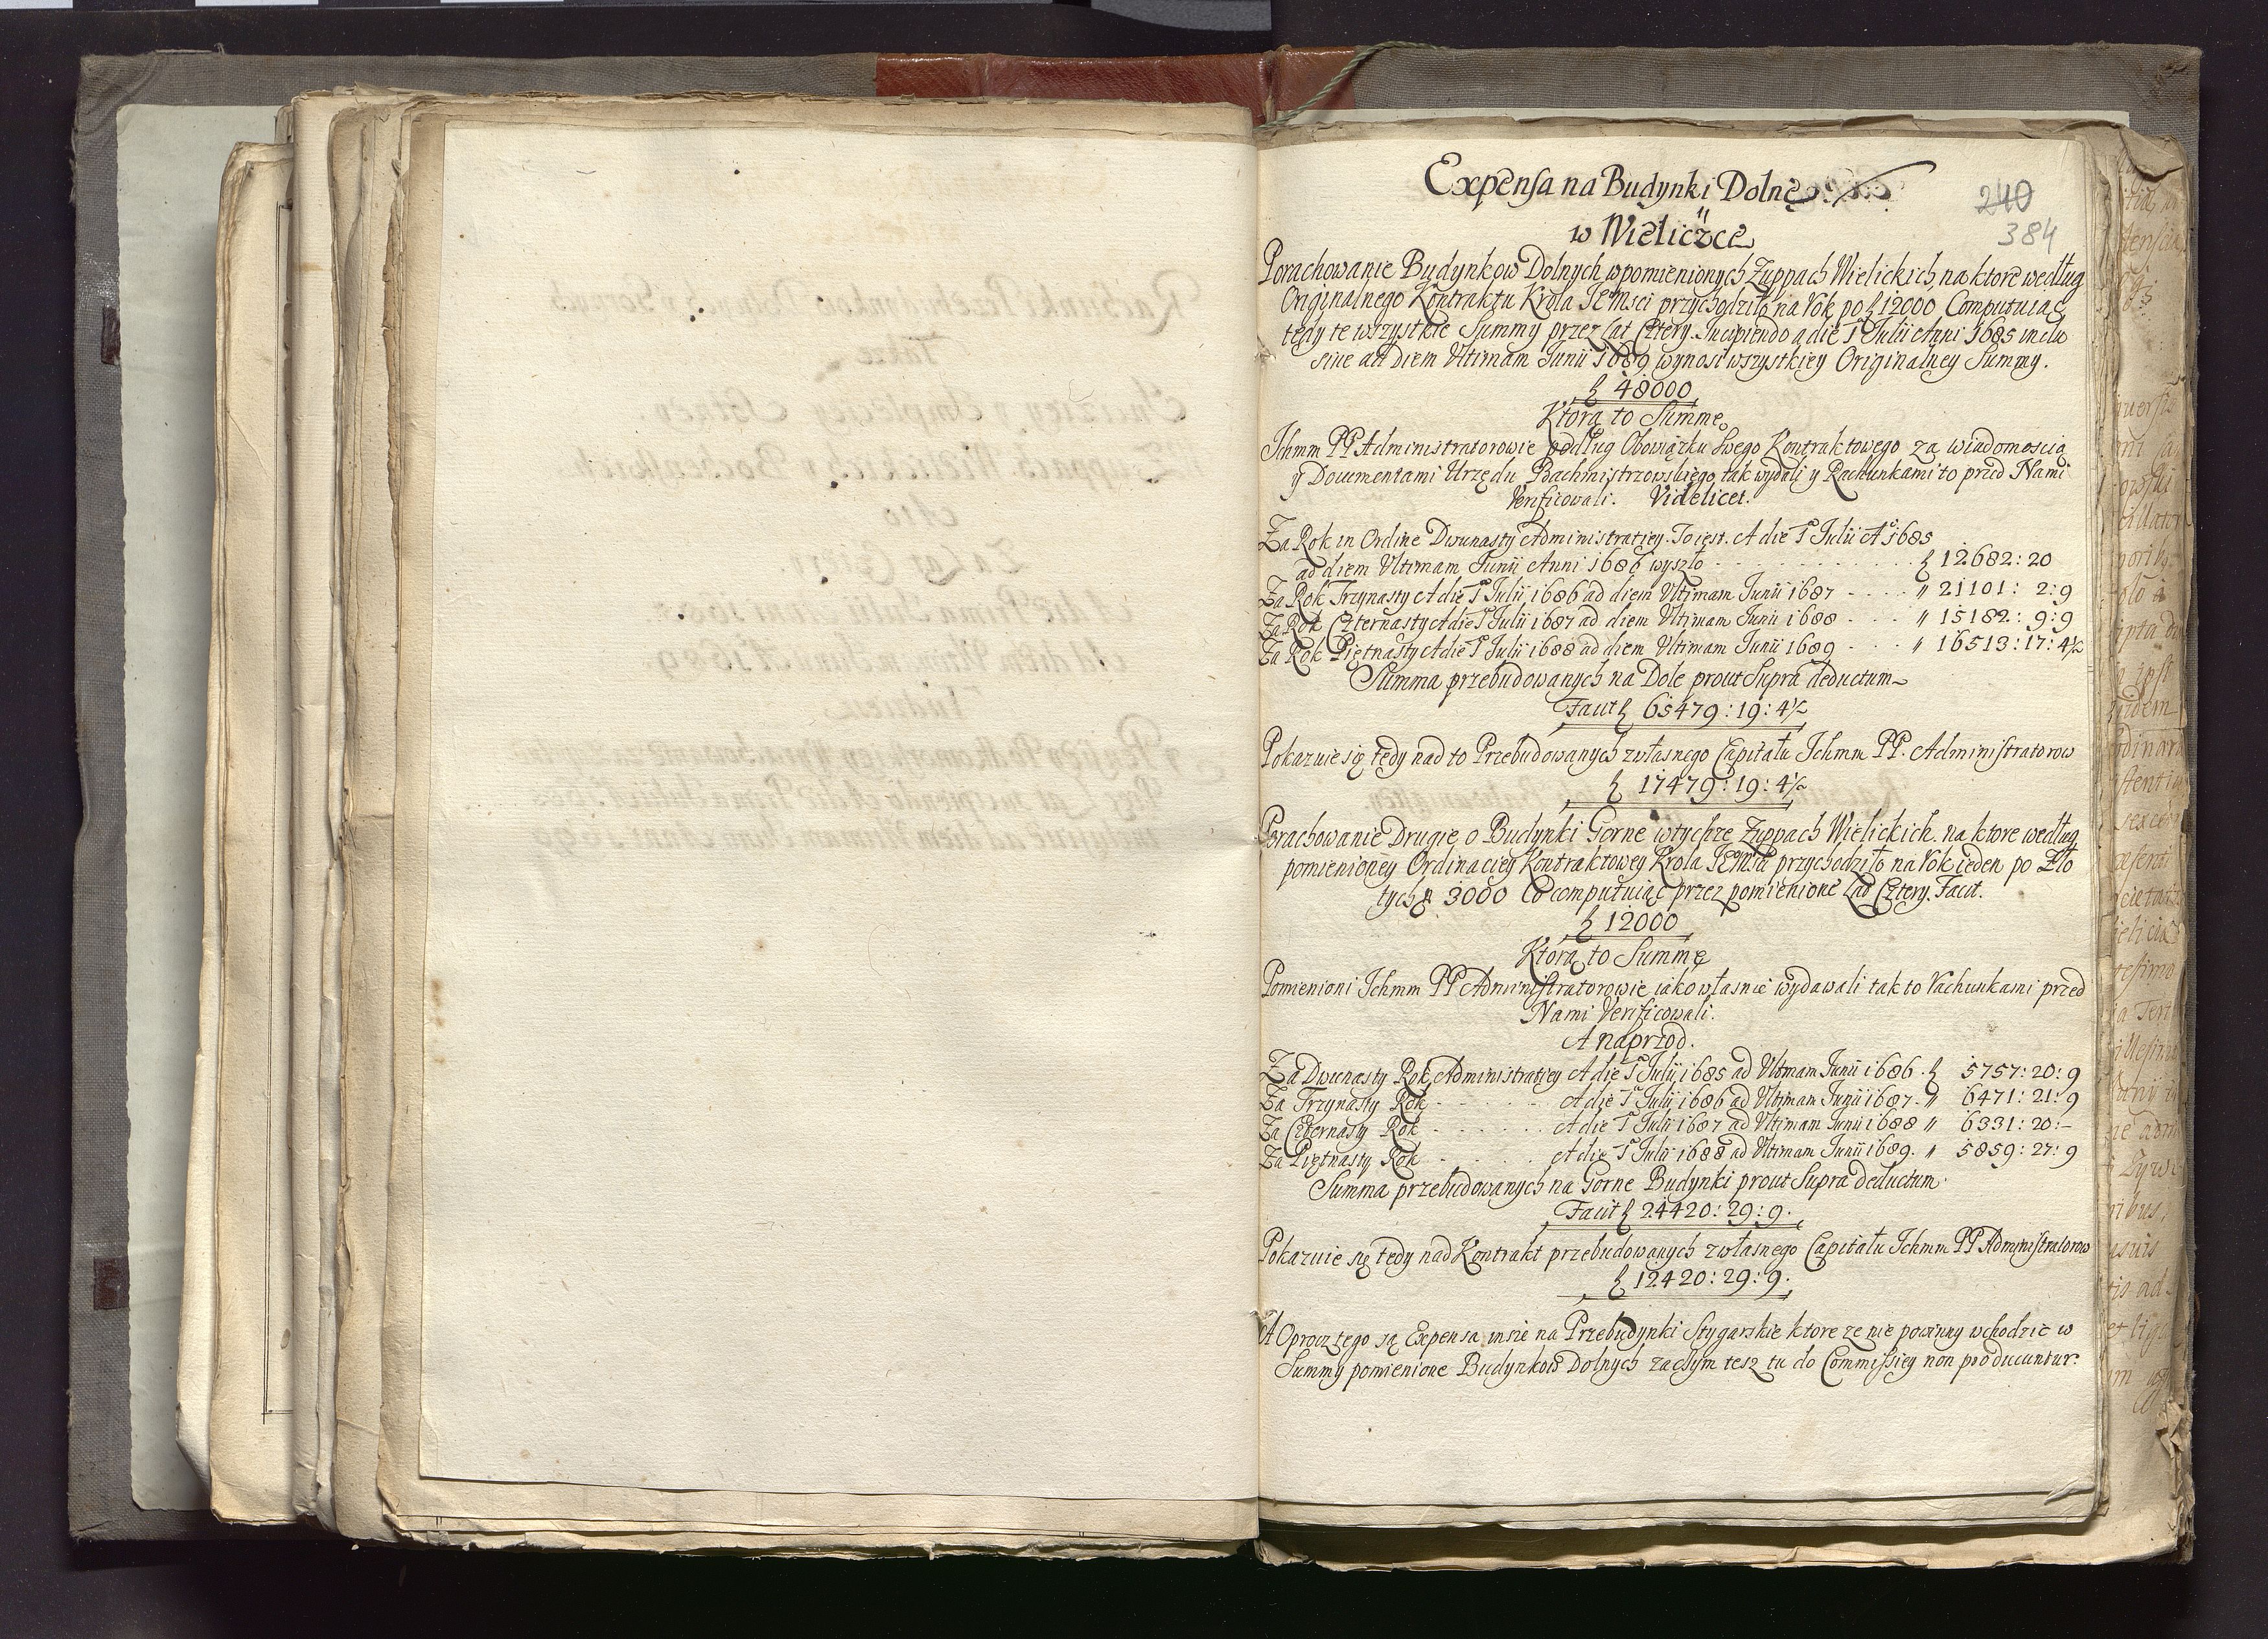 Expensa na Budynki Dolne
240
w Wieliczce
384
Porachowanie Budynkow Dolnych wpomienionych Zuppach Wielickich, na ktore według
Originalnego Kontraktu Krola JEMsci przychodziło na Rok po ƶ 12000 Computuiąc
tedy te wszystkie Summy przez Lat Cztery. Incipiendo a die 1ma Julii Anni 1685 inclu
sive ad diem Ultimam Junii 1689 wynosi wszystkiey Originalney Summy.
ƶ 48000
Ktorą to Summę
Ichmm PP Administratorowie podług Obowiązku swego Kontraktowego za wiadomoscią
y Documentami Urzędu Bachmistrzowskiego, tak wydali y Rachunkami to przed Nami
Verificowali. Videlicet.
Za Rok in Ordine Dwunasty Administratiey. To iest. A die 1ma Julii Ao 1685
ad diem Ultimam Junii Anni 1686 wyszło - - - ƶ 12682: 20
Za Rok Trzynasty A die 1ma Julii 1686 ad diem Ultimam Junii 1687 - - - " 21101: 2: 9
Za Rok Czternasty A die 1ma Julii 1687 ad diem Ultimam Junii 1688 - - - " 15182: 9: 9
Za Rok Piętnasty A die 1ma Julii 1688 ad diem Ultimam Junii 1689 - - - " 16513: 17: 4½
Summa przebudowanych na Dole prout Supra deductum
Facit ƶ 65479: 19: 4½
Pokazuie się tedy nad to Przebudowanych z własnego Capitału Ichmm PP. Administratorow
ƶ 17479: 19: 4½
Porachowanie Drugie o Budynki Gorne wtychże Zuppach Wielickich. na ktore według
pomienioney Ordinaciey Kontraktowey Krola JEMsci przychodziło na Rok ieden po Zło
tych 3000 Co computuiąc przez pomienione Lat Cztery. Facit.
ƶ 12000
Ktorą to Summę
Pomienioni Ichmm PP Administratorowie iako własnie wydawali tak to Rachunkami przed
Nami Verificowali.
A naprzod.
Za Dwunasty Rok Administratiey A die 1ma Julii 1685 ad Ultimam Junii 1686. ƶ 5757: 20: 9
Za Trzynasty Rok - - - A die 1ma Julii 1686 ad Ultimam Junii 1687 - " 6471: 21: 9
Za Czternasty Rok - - - A die 1ma Julii 1687 ad Ultimam Junii 1688 " 6331: 20: -
Za Piętnasty Rok - - - A die 1ma Julii 1688 ad Ultimam Junii 1689. " 5859: 27: 9
Summa przebudowanych na Gorne Budynki prout Supra deductum.
Facit ƶ 24420: 29: 9.
Pokazuie się tedy nad Kontrakt przebudowanych z własnego Capitału Ichmm PP Administratorow
ƶ 12420: 29: 9.
A Oprocz tego są Expensa insze na Przebudynki Stygarskie ktore ze nie powinny wchodzic w
Summy pomienione Budynkow Dolnych zaczym tesz tu do Commissiey non producuntur.